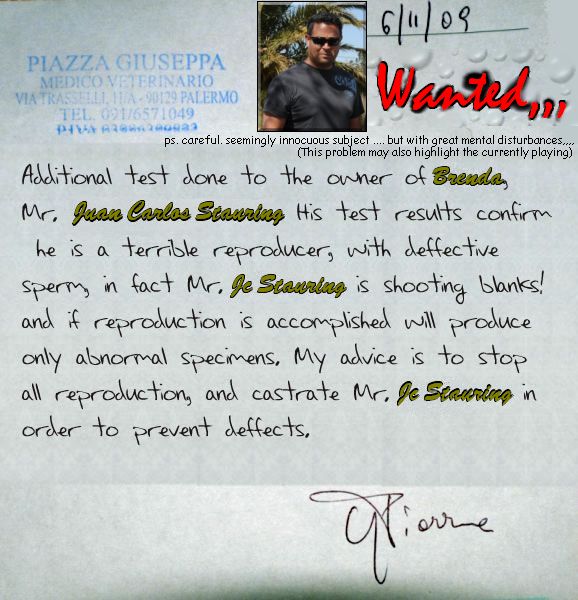 PIAZZA GIUSEPPA
MEDICO VETERINARIO
VIA TRASSELLI, 11/A - 90129 PALERMO
TEL. 091/6571049
6/11/09
Wanted,,,
ps. careful. seemingly innocuous subject .... but with great mental disturbances,,,,
(This problem may also highlight the currently playing)
Additional test done to the owner of Brenda,
Mr. Juan Carlos Stauring His test results confirm
he is a terrible reproducer, with deffective
sperm, in fact Mr. Jc Stauring is shooting blanks!
and if reproduction is accomplished will produce
only abnormal specimens. My advice is to stop
all reproduction, and castrate Mr. Jc Stauring in
order to prevent deffects.